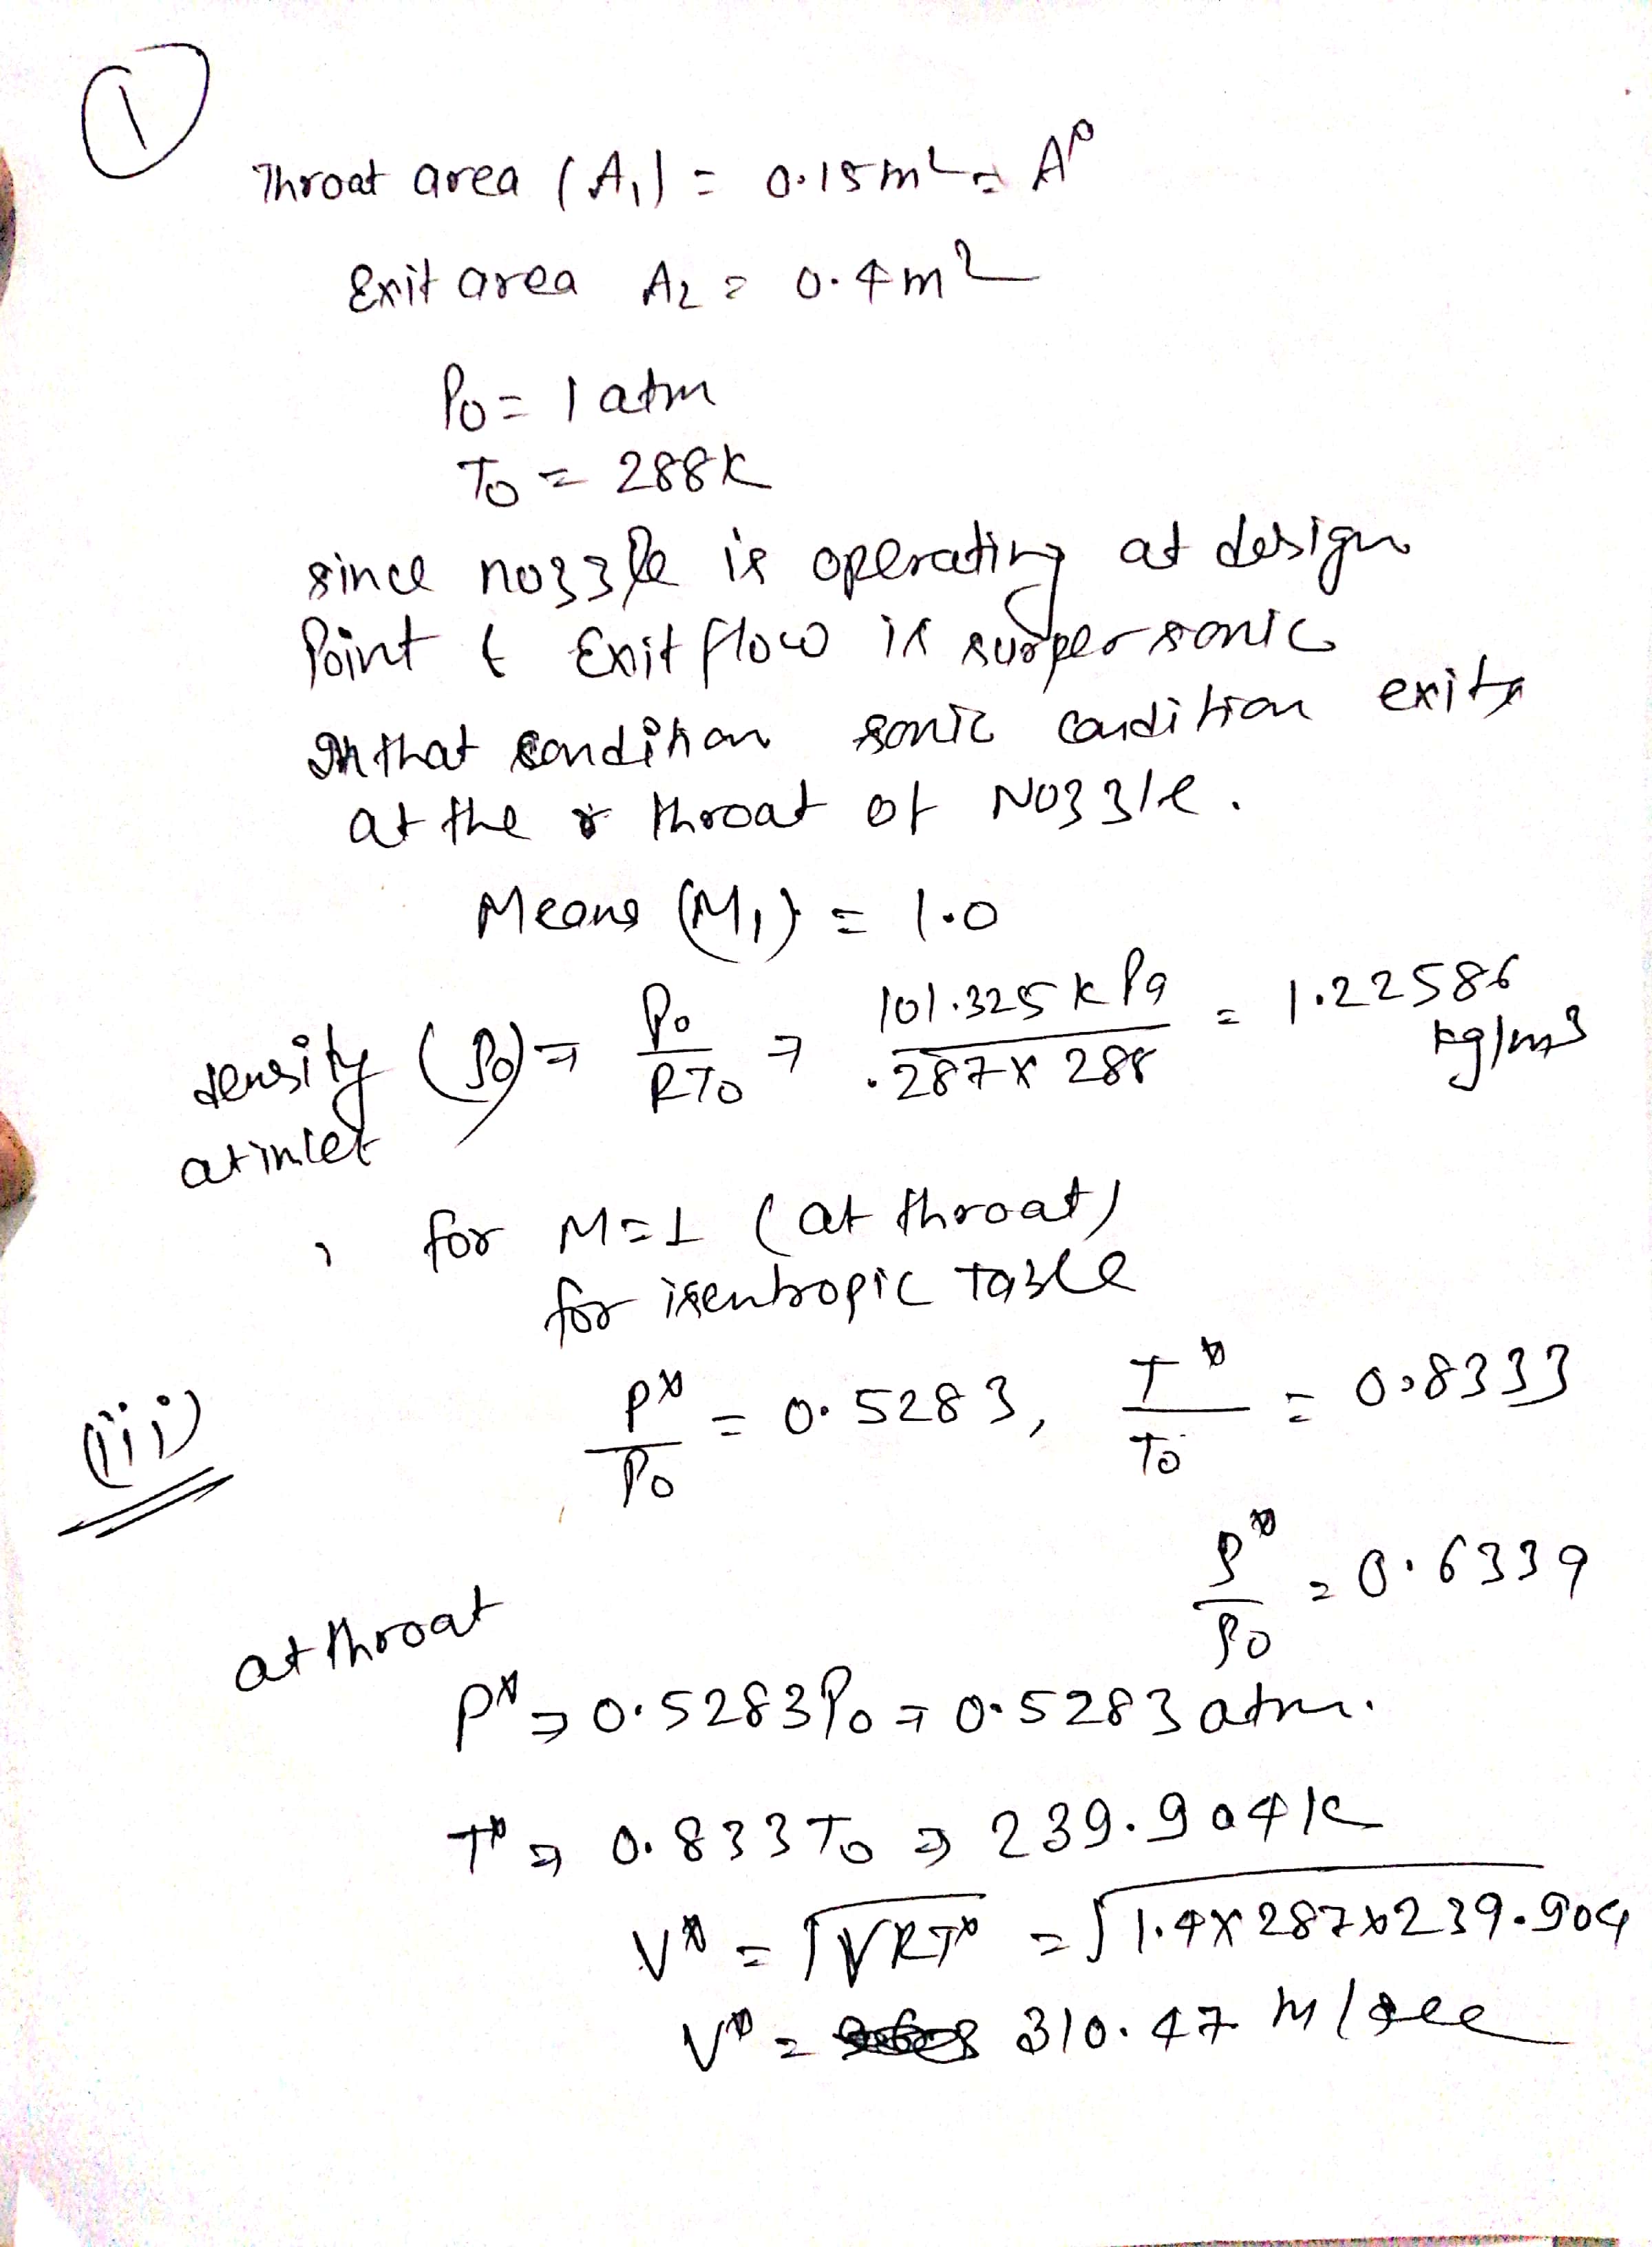 1
Throat area (A₁) = 0.15m² = A*
Exit area A₂ = 0.4m²
P₀ = 1 atm
T₀ = 288K
since nozzle is operating at design
Point & Exit flow is supersonic
In that condition sonic condition exits
at the throat of Nozzle.
Means (M₁) = 1.0
density (ρ₀) ⇒ P₀/RT₀ ⇒ 101.325 kPa/.287 x 288 = 1.22586 kg/m³
at inlet
, for M=1 (at throat)
for isentropic table
(iii) P*/P₀ = 0.5283, T*/T₀ = 0.8333
ρ*/ρ₀ = 0.6339
at throat
P* ⇒ 0.5283P₀ ⇒ 0.5283 atm.
T* ⇒ 0.833T₀ ⇒ 239.904K
V* = √γRT* = √1.4 x 287 x 239.904
V* = 310.47 m/sec